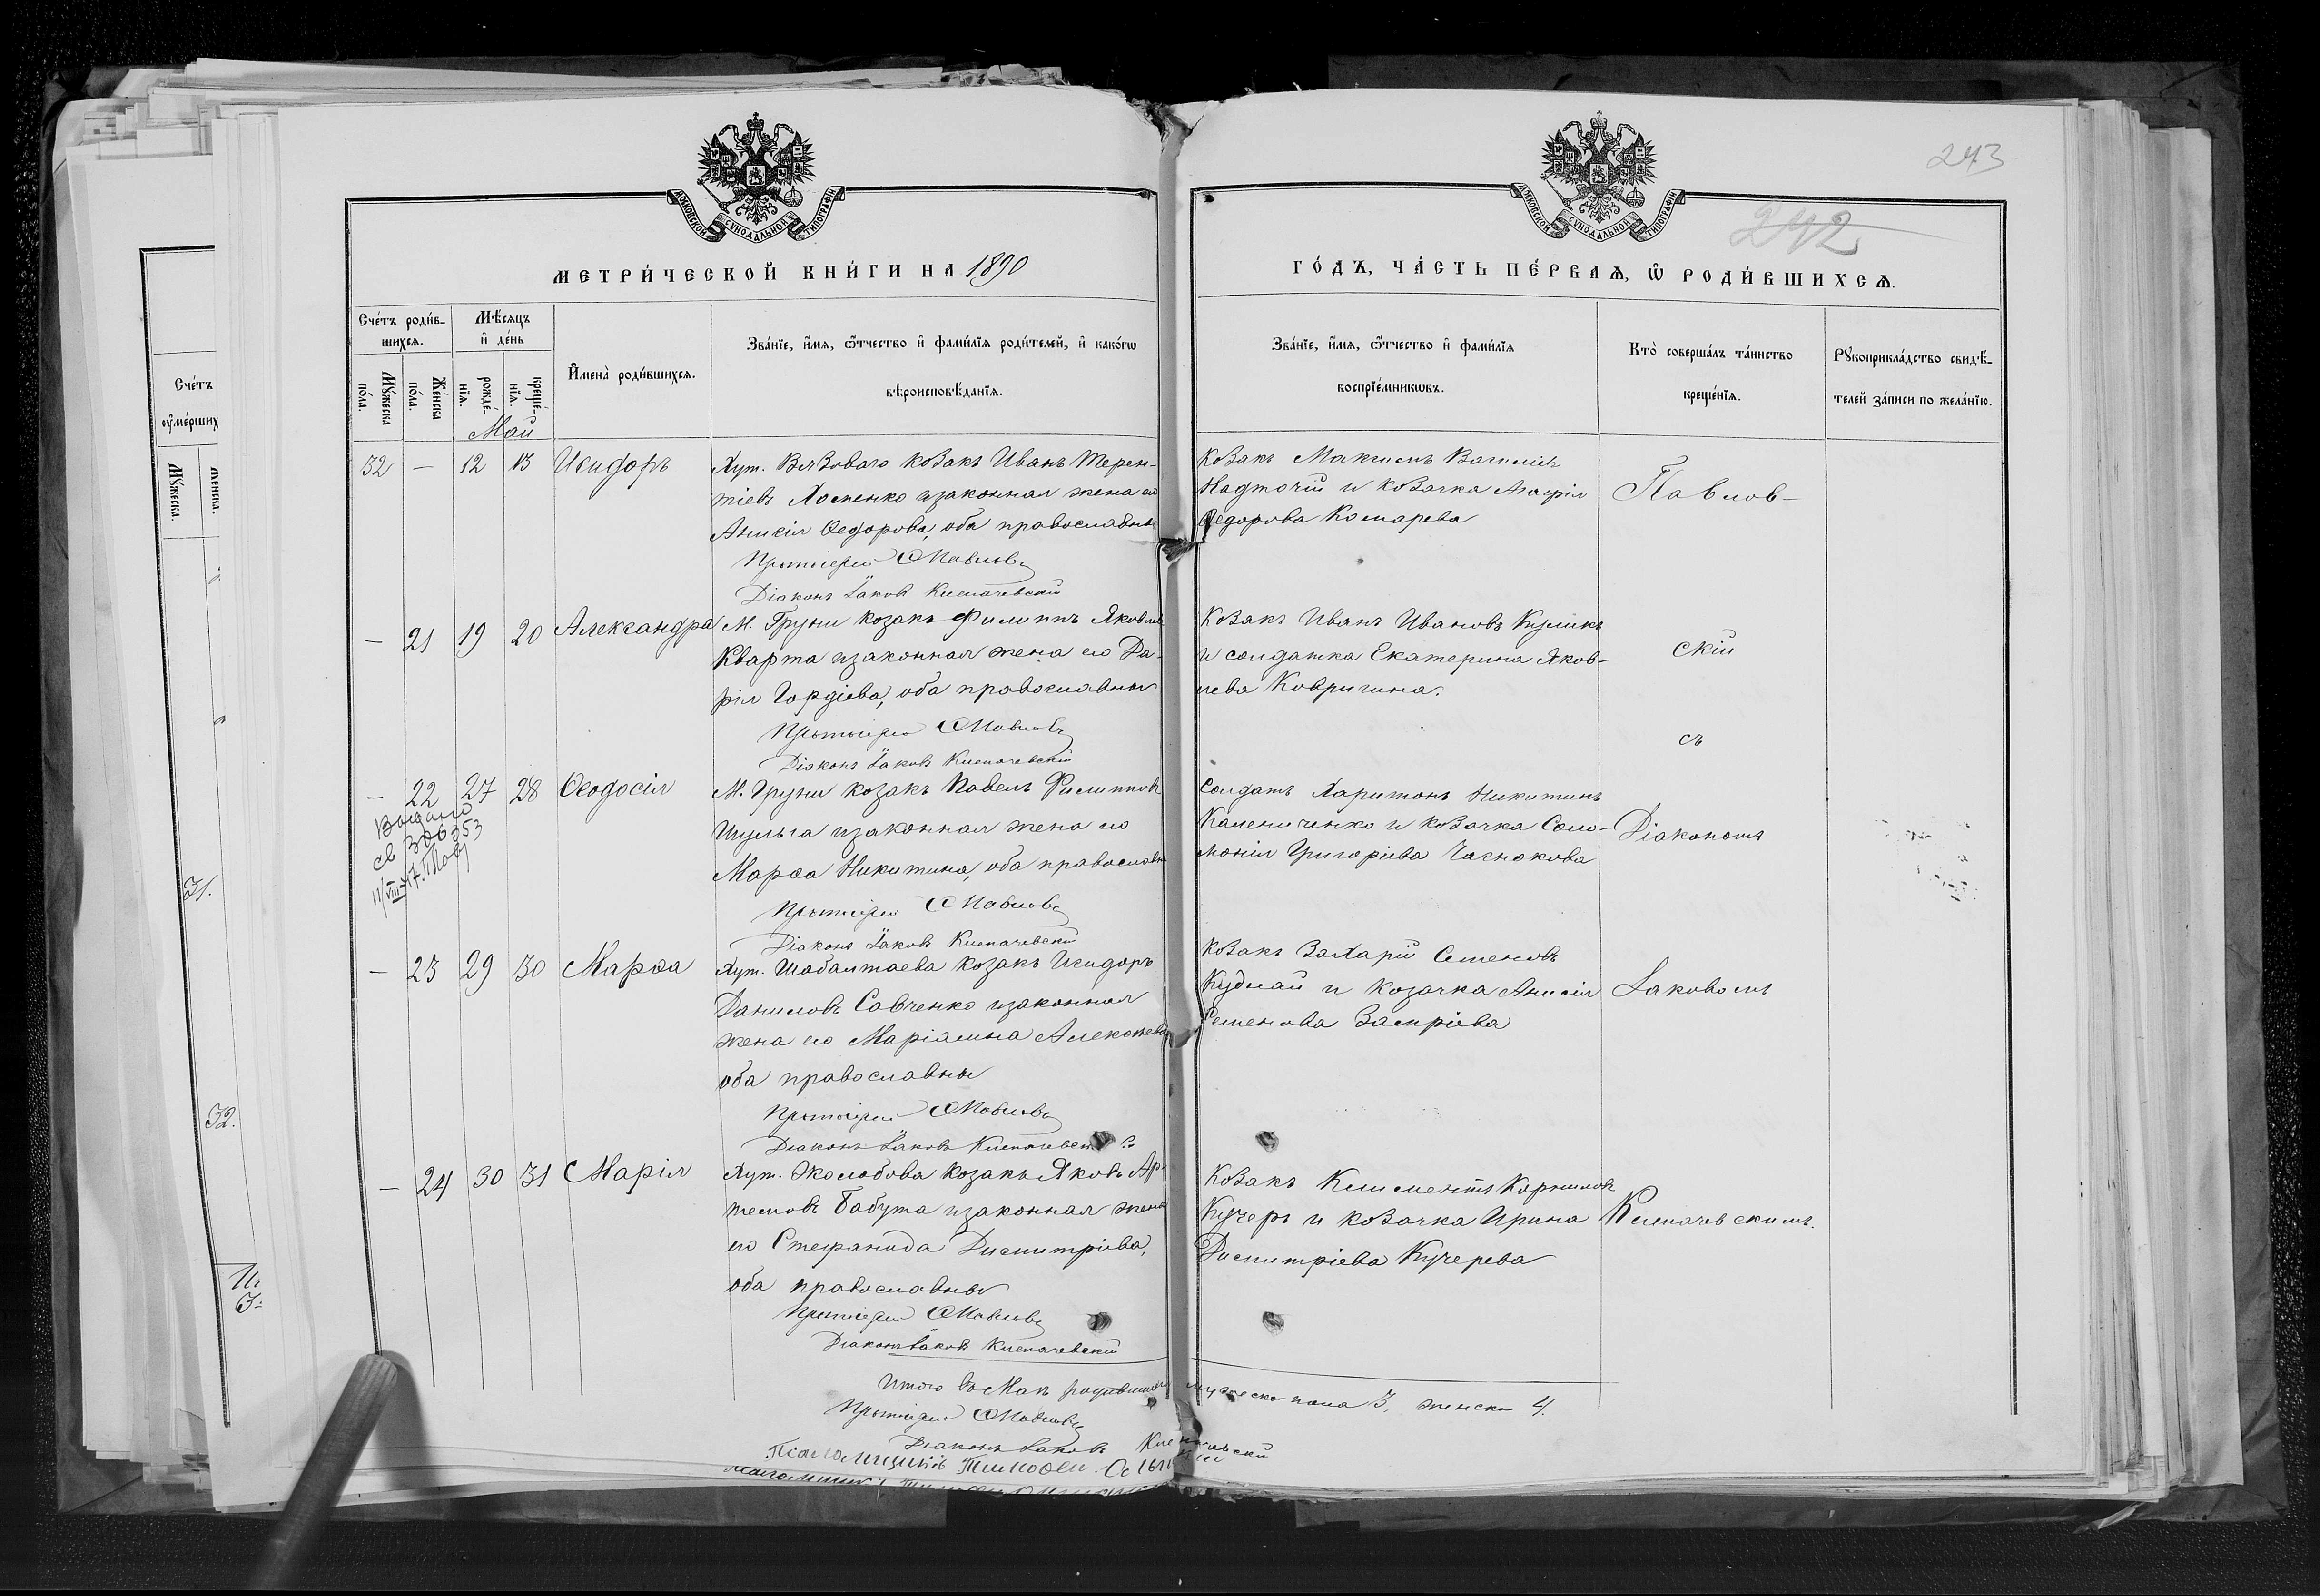 243
242
МОСКОВСКОЙ СУНОДАЛЬНОЙ ТИПОГРАФІИ
МОСКОВСКОЙ СУНОДАЛЬНОЙ ТИПОГРАФІИ
МЕТРИ́ЧЕСКОЙ КНИ́ГИ НА 1890
ГО́ДЪ, ЧА́СТЬ ПЕ́РВАѦ, Ѡ҆ РОДИ́ВШИХСѦ.
Сче́тъ роди́в-
шихсѧ.
Мꙋ́жеска
по́ла.
Же́нска
по́ла.
Мѣ́сѧцъ
и҆ де́нь
рожде́-
нїѧ.
креще́-
нїѧ.
Май
И҆мена̀ роди́вшихсѧ.
Зва́нїе, и҆́мѧ, ѻ҆́тчество и҆ фами́лїѧ роди́телей, и҆ како́гѡ
вѣроисповѣ́данїѧ.
Зва́нїе, и҆́мѧ, ѻ҆́тчество и҆ фами́лїѧ
воспрїе́мникѡвъ.
Кто̀ соверша́лъ та́инство
креще́нїѧ.
Рꙋкоприкла́дство свидѣ́-
телей за́писи по жела́нїю.
32 — 12 13 Исидоръ
Хут. Вязоваго козакъ Иванъ Терен-
тіевъ Хоменко и законная жена его
Анисія Ѳедорова, оба православные
Протоіерей Павловъ
Діаконъ Іаковъ Клепачевскій
Козакъ Максимъ
Надточій и козачка Агафія
Ѳедорова Комарева
Павлов-
— 21 19 20 Александра
М. Груни козакъ Филиппъ Яковлевъ
Кварта и законная жена его Да-
рія Гордіева, оба православные
Протоіерей Павловъ
Діаконъ Іаковъ Клепачевскій
Козакъ Иванъ Ивановъ Куликъ
и солдатка Екатерина Яков-
лева Ковригина.
скій
съ
— 22 27 28 Ѳеодосія
М. Груни козакъ Павелъ Филипповъ
Шульга и законная жена его
Марѳа Никитина, оба православны
Протоіерей Павловъ
Діаконъ Іаковъ Клепачевскій
Солдатъ Харитонъ Никитинъ
Калениченко и козачка Соло-
монія Григоріева Часнокова
Діакономъ
— 23 29 30 Марѳа
Хут. Шабалтаева козакъ Исидоръ
Даниловъ Савченко и законная
жена его Маріамна Алексѣева
оба православны
Протоіерей Павловъ
Діаконъ Іаковъ
Козакъ Захарій Семеновъ
Кудлай и козачка Анисія
Семенова
Іаковомъ
— 24 30 31 Марія
Хут. Жолобова козакъ Яковъ Ар-
темовъ Бабута и законная жена
его Стефанида Димитріева,
оба православны
Протоіерей Павловъ
Діаконъ Іаковъ Клепачевскій
Козакъ Климентъ Корниловъ
Кучеръ и козачка Ирина
Димитріева Кучерева
Клепачевскимъ.
Итого въ Маѣ родившихся мужеска пола 3, женска 4.
Протоіерей Павловъ
Діаконъ Іаковъ Клепачевскій
Сче́тъ
ᲂу҆ме́рших
Мꙋ́жеска.
31.
32.